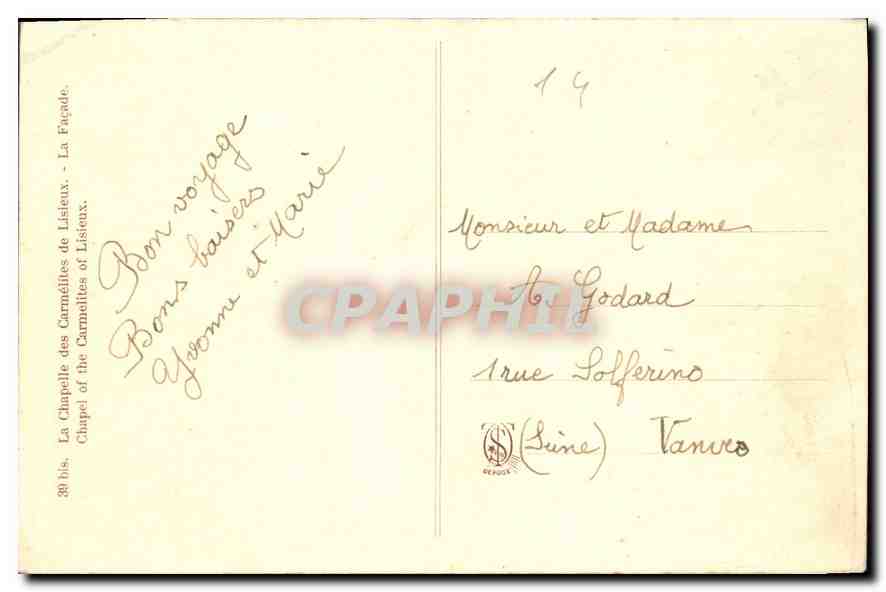 39 bis. La Chapelle des Carmélites de Lisieux. - La Façade.
Chapel of the Carmelites of Lisieux.
Bon voyage
Bons baisers
Yvonne et Marie
14
Monsieur et Madame
A. Godard
1 rue Solferino
(Seine) Vanves
DEPOSE
CPAPHIL